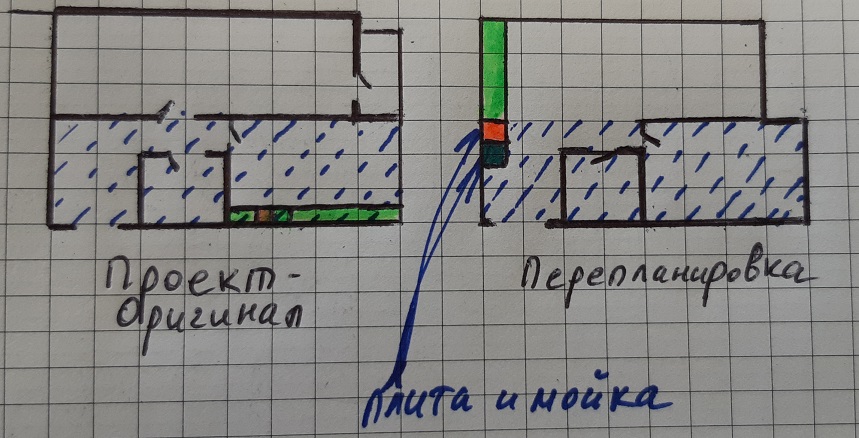 Проект-
Оригинал
Перепланировка
плита и мойка